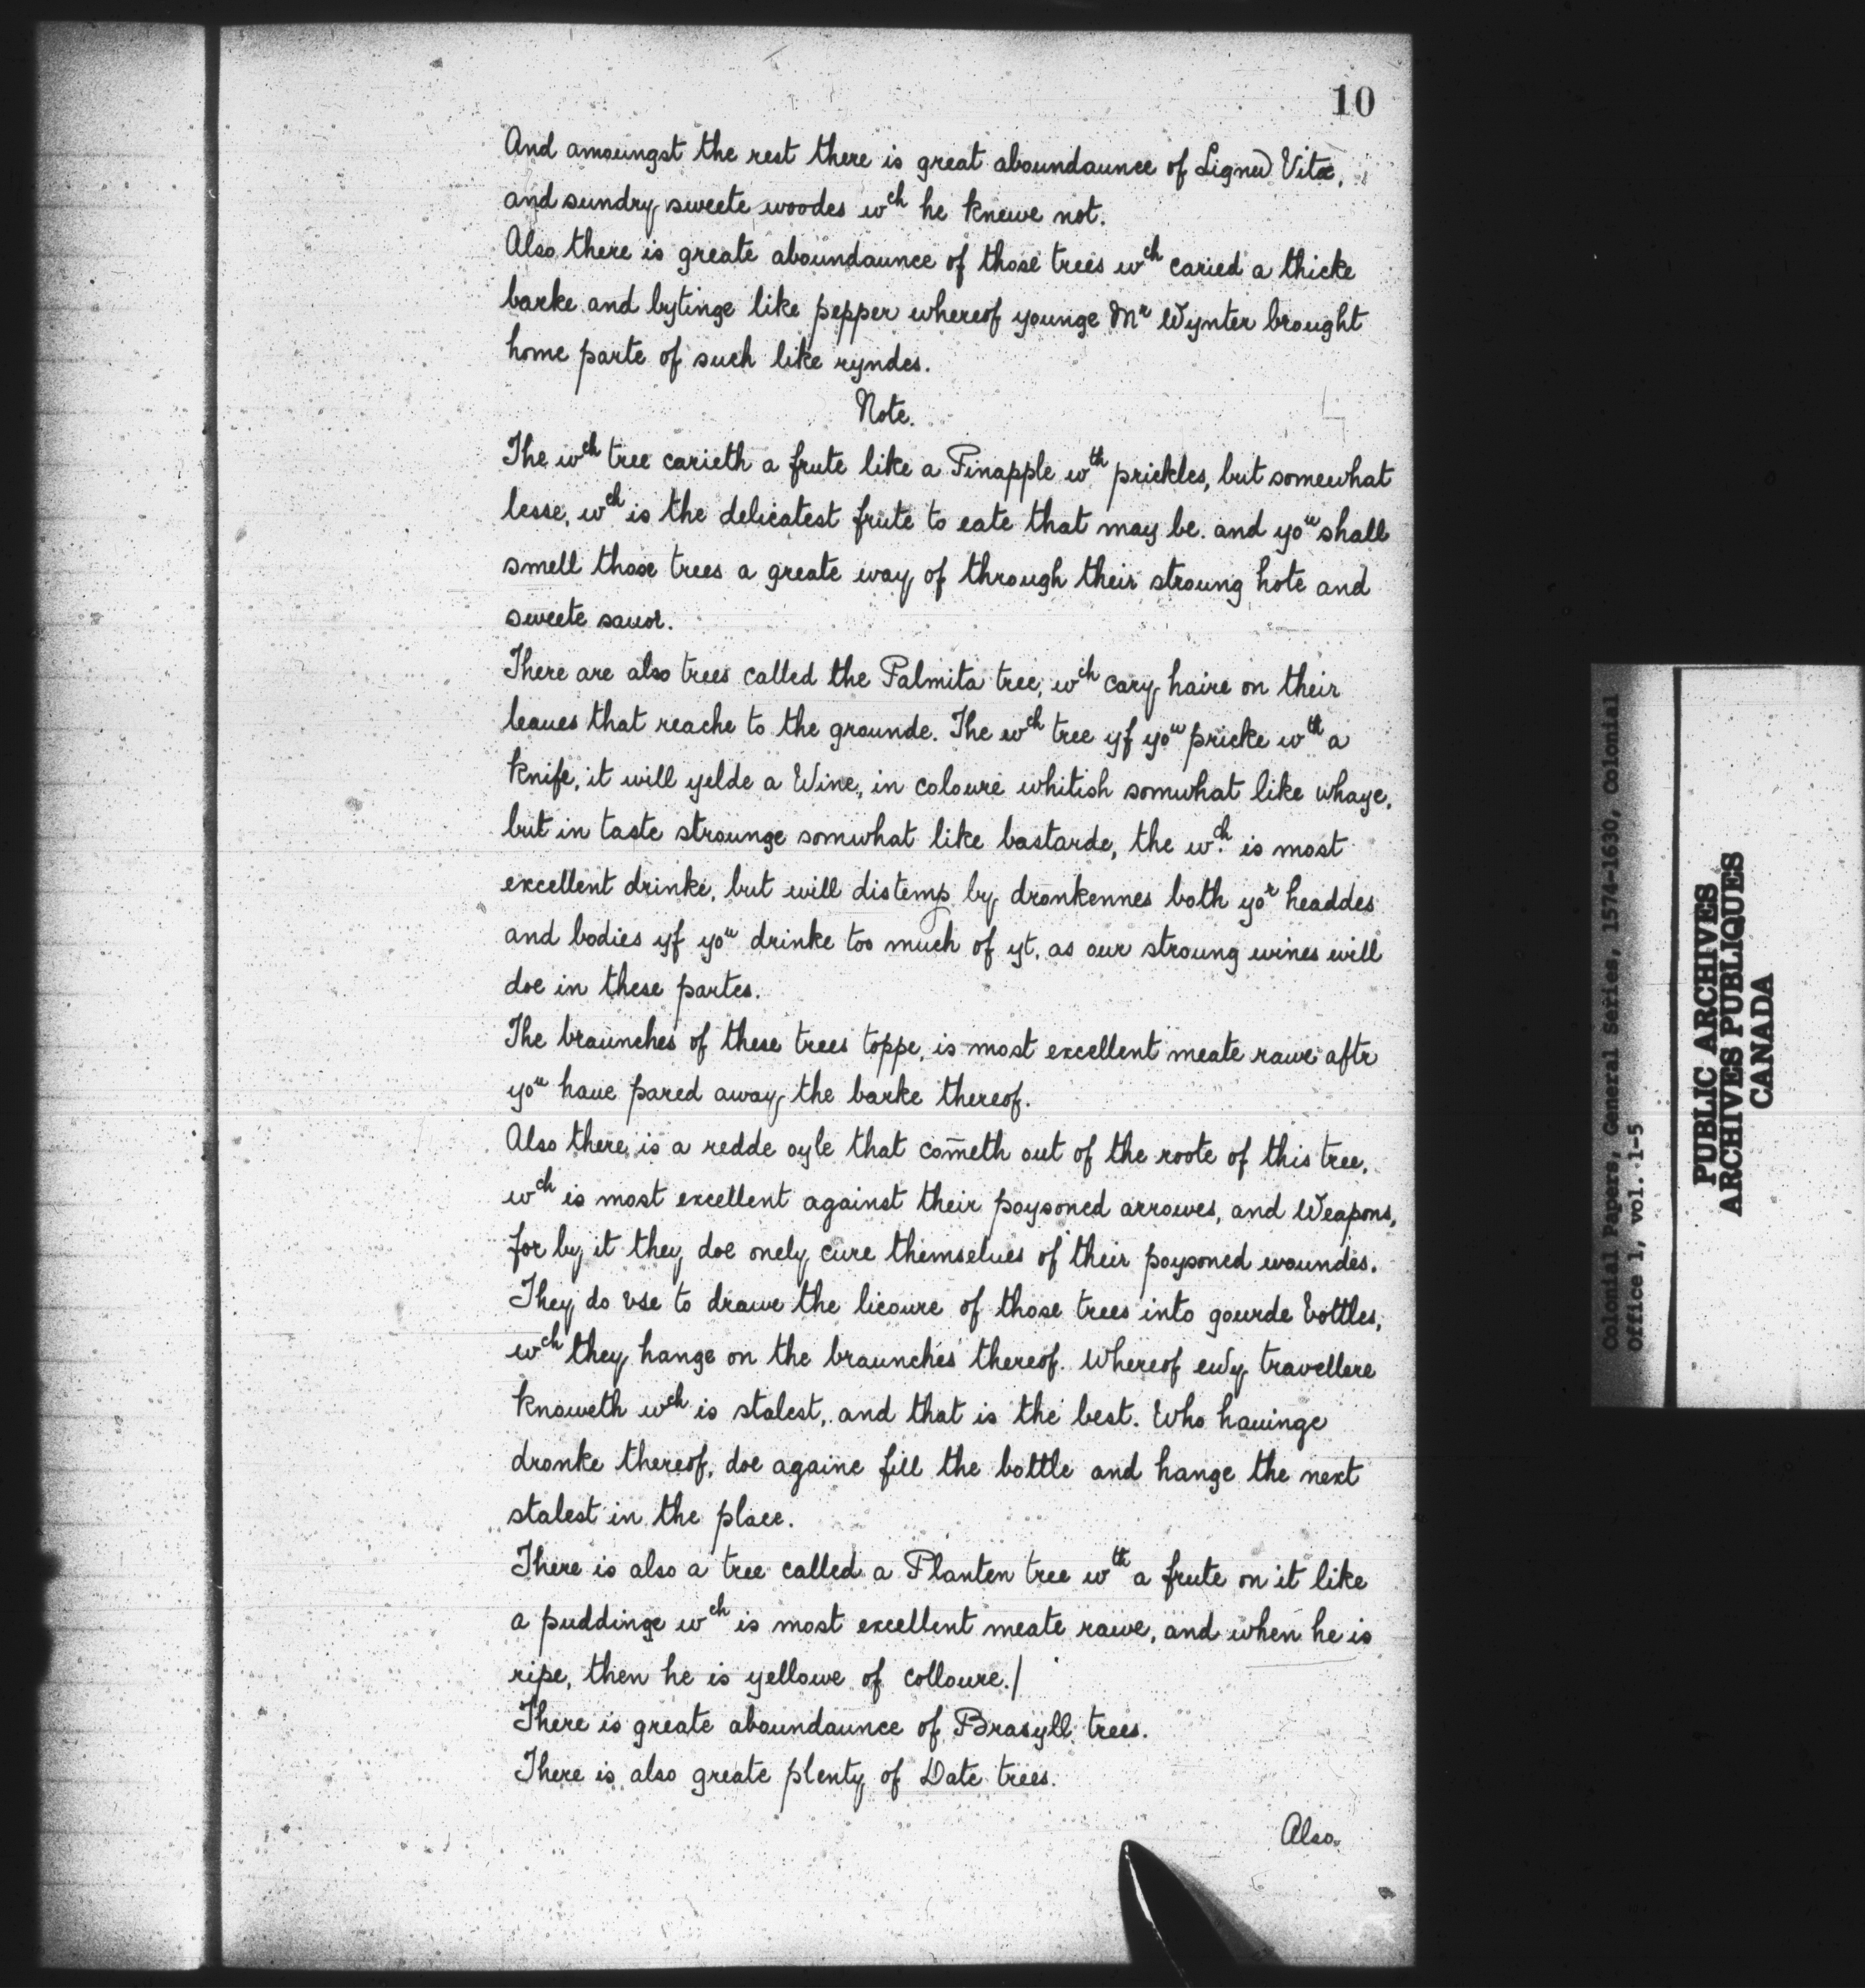 10
And amoungst the rest there is great aboundaunce of Lignū Vitæ,
and sundry sweete woodes wch he knewe not.
Also there is greate aboundaunce of those trees wch caried a thicke
barke and bytinge like pepper whereof younge Mr Wynter brought
home parte of such like ryndes.
Note.
The wch tree carieth a frute like a Pinapple wth prickles, but somewhat
lesse, wch is the delicatest frute to eate that may be. and you shall
smell those trees a greate way of through their stroung hote and
sweete sauor.
There are also trees called the Palmita tree, wch cary haire on their
leaues that reache to the grounde. The wch tree yf you pricke wth a
knife, it will yelde a Wine, in coloure whitish somwhat like whaye,
but in taste straunge somwhat like bastarde, the wch is most
excellent drinke, but will distemp by dronkennes both yor headdes
and bodies yf you drinke too much of yt, as our stroung wines will
doe in these partes.
The braunches of these trees toppe, is most excellent meate rawe aftr
you haue pared away the barke thereof.
Also there is a redde oyle that com̄eth out of the roote of this tree,
wch is most excellent against their poysoned arrowes, and Weapons,
for by it they doe onely cure themselues of their poysoned woundes.
They do vse to drawe the licoure of those trees into gourde bottles,
wch they hange on the braunches thereof. Whereof euy travellere
knoweth wch is stalest, and that is the best. Who hauinge
dronke thereof, doe againe fill the bottle and hange the next
stalest in the place.
There is also a tree called a Planten tree wth a frute on it like
a puddinge wch is most excellent meate rawe, and when he is
ripe, then he is yellowe of colloure./
There is greate aboundaunce of Brasyll trees.
There is also greate plenty of Date trees.
Also
Colonial Papers, General Series, 1574-1630, Colonial
Office 1, vol. 1-5
PUBLIC ARCHIVES
ARCHIVES PUBLIQUES
CANADA